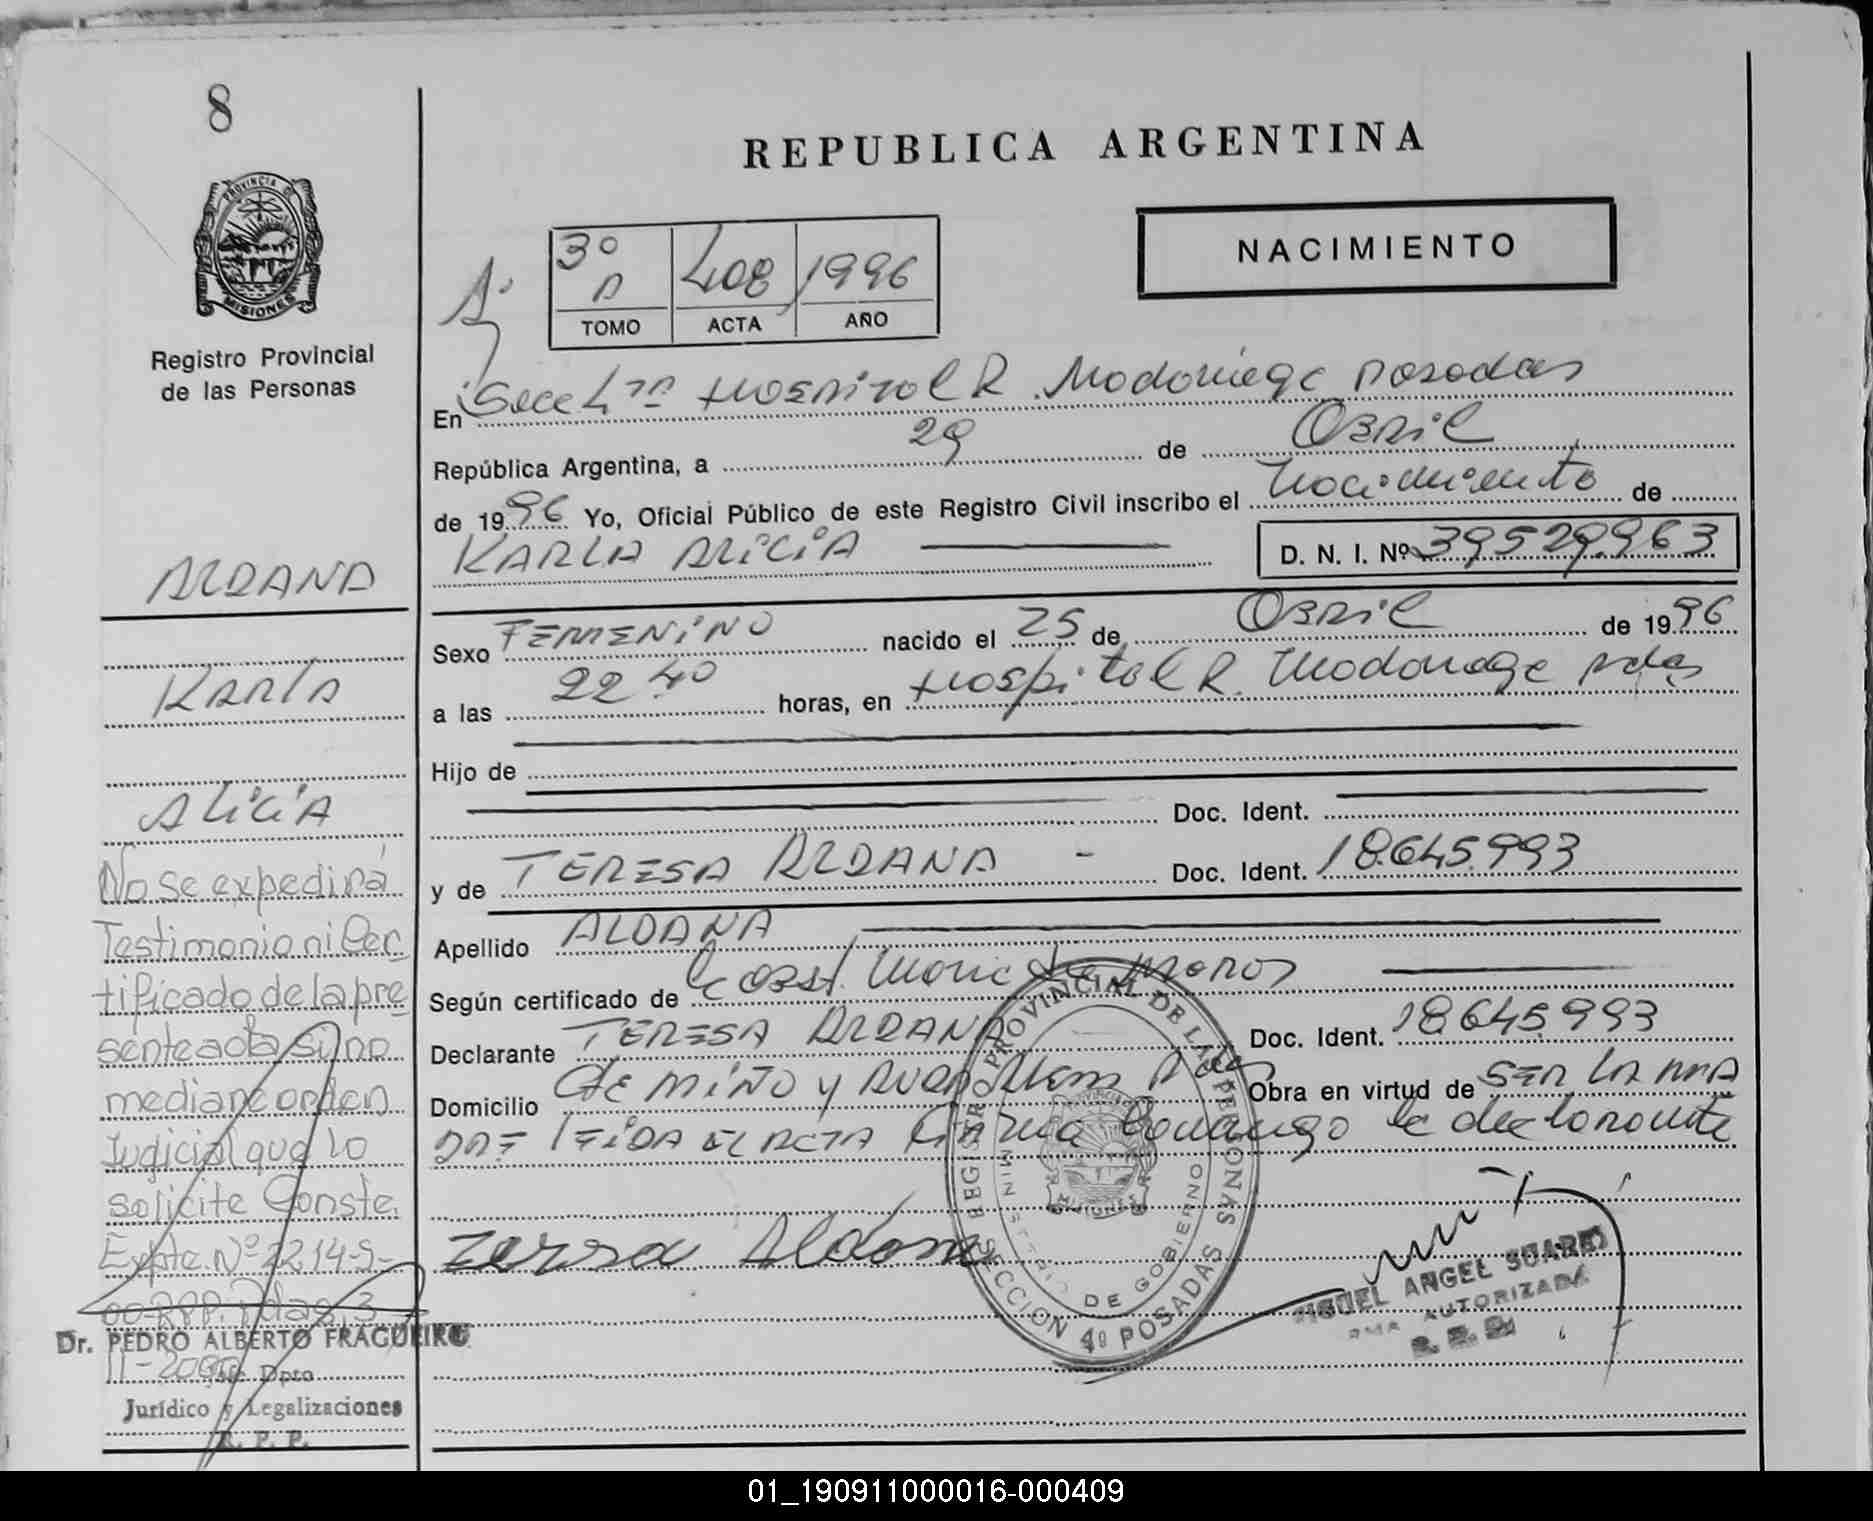 8
PROVINCIA DE
MISIONES
Registro Provincial
de las Personas
REPUBLICA ARGENTINA
NACIMIENTO
3º A 408 1996
TOMO ACTA AÑO
En Secc 4ta Hospital R. Madariaga Posadas
República Argentina, a 29 de Abril
de 1996 Yo, Oficial Público de este Registro Civil inscribo el Nacimiento de
KARLA ALICIA D. N. I. Nº 39529.963
Sexo FEMENINO nacido el 25 de Abril de 1996
a las 22 40 horas, en Hospital R. Madariaga Pdas
Hijo de
Doc. Ident.
y de TERESA ALDANA - Doc. Ident. 18.645.993
Apellido ALDANA
Según certificado de Obst.
Declarante TERESA ALDANA Doc. Ident. 18.645.993
Domicilio MIÑO y Pdas Obra en virtud de SER LA MA
DRE LEIDA EL ACTA Firma Conmigo la declarante
Teresa Aldana
REGISTRO PROVINCIAL DE LAS PERSONAS
MINISTERIO DE GOBIERNO
SECCION 4º POSADAS
MIGUEL ANGEL SUAREZ
FIRMA AUTORIZADA
ALDANA
KARLA
ALICIA
No se expedirá
Testimonio ni Cer
tificado de la pre
sente acta si no
mediare orden
Judicial que lo
solicite Conste.
Expte. Nº 2214-S-
00-RPP. Pdas, 3
Dr. PEDRO ALBERTO FRAGUEIRO
11-2000 Dpto
Jurídico y Legalizaciones
R. P. P.
01_190911000016-000409